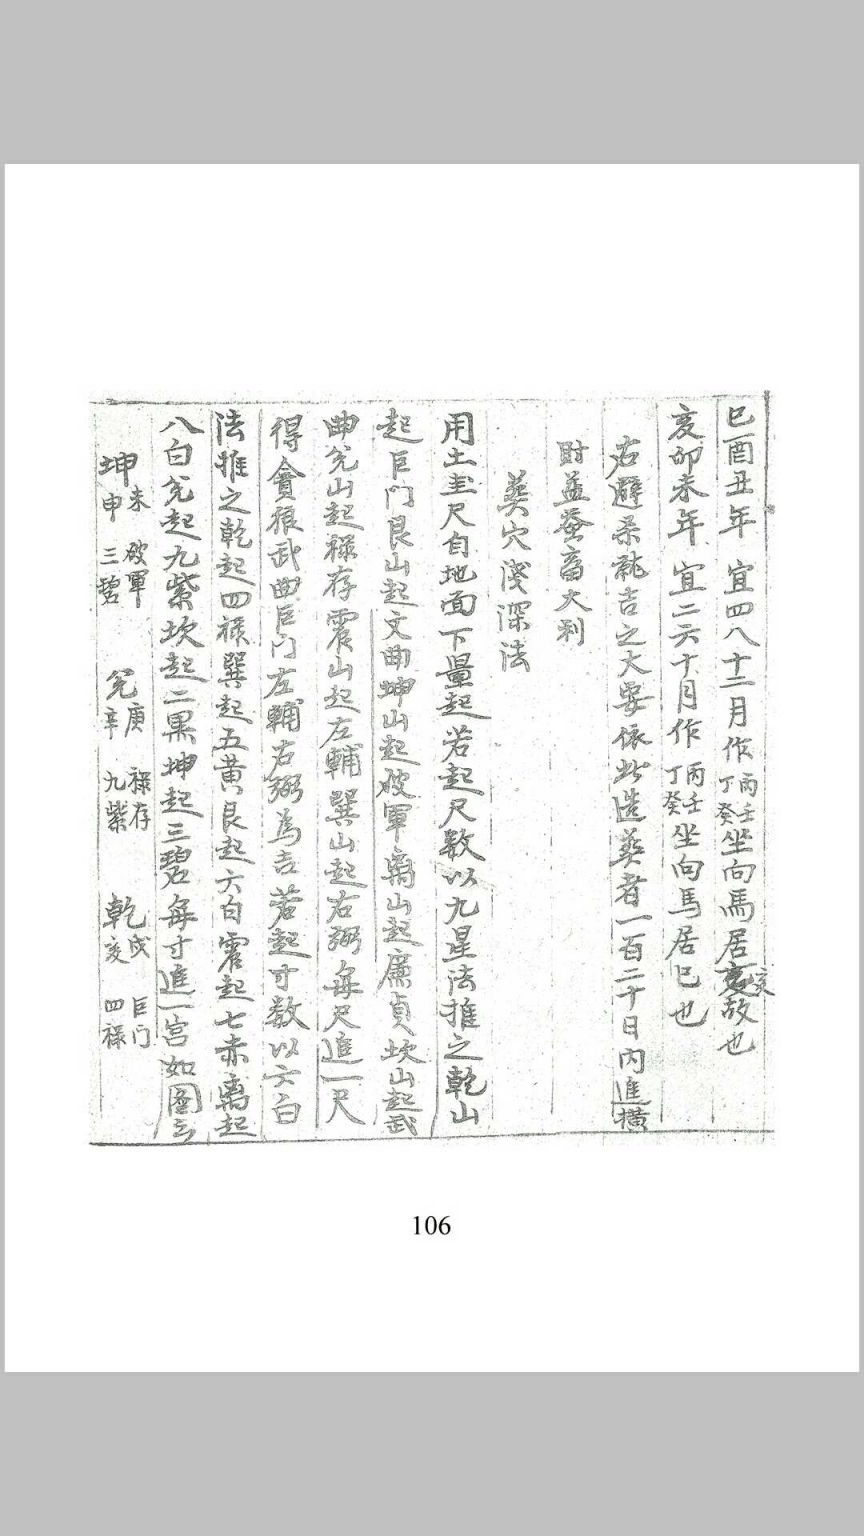 巳酉丑年　宜四八十二月作丙壬丁癸坐向馬居亥故也
亥卯未年　宜二六十月作丙壬丁癸坐向馬居巳也
右避杀就吉之大要依此造葬者一百二十日內進橫
財益蚕畜大利
葬穴淺深法
用土圭尺自地面下量起若起尺数以九星法推之乾山
起巨门艮山起文曲坤山起破軍离山起廉貞坎山起武
曲兊山起禄存震山起左輔巽山起右弼每尺進一尺
得貪狼武曲巨门左輔右弼為吉若起寸数以六白
法推之乾起四禄巽起五黄艮起六白震起七赤离起
八白兊起九紫坎起二黑坤起三碧每寸進一宮如圖云
坤未申　破軍三碧　兊庚辛　禄存九紫　乾戍亥　巨门四禄
106